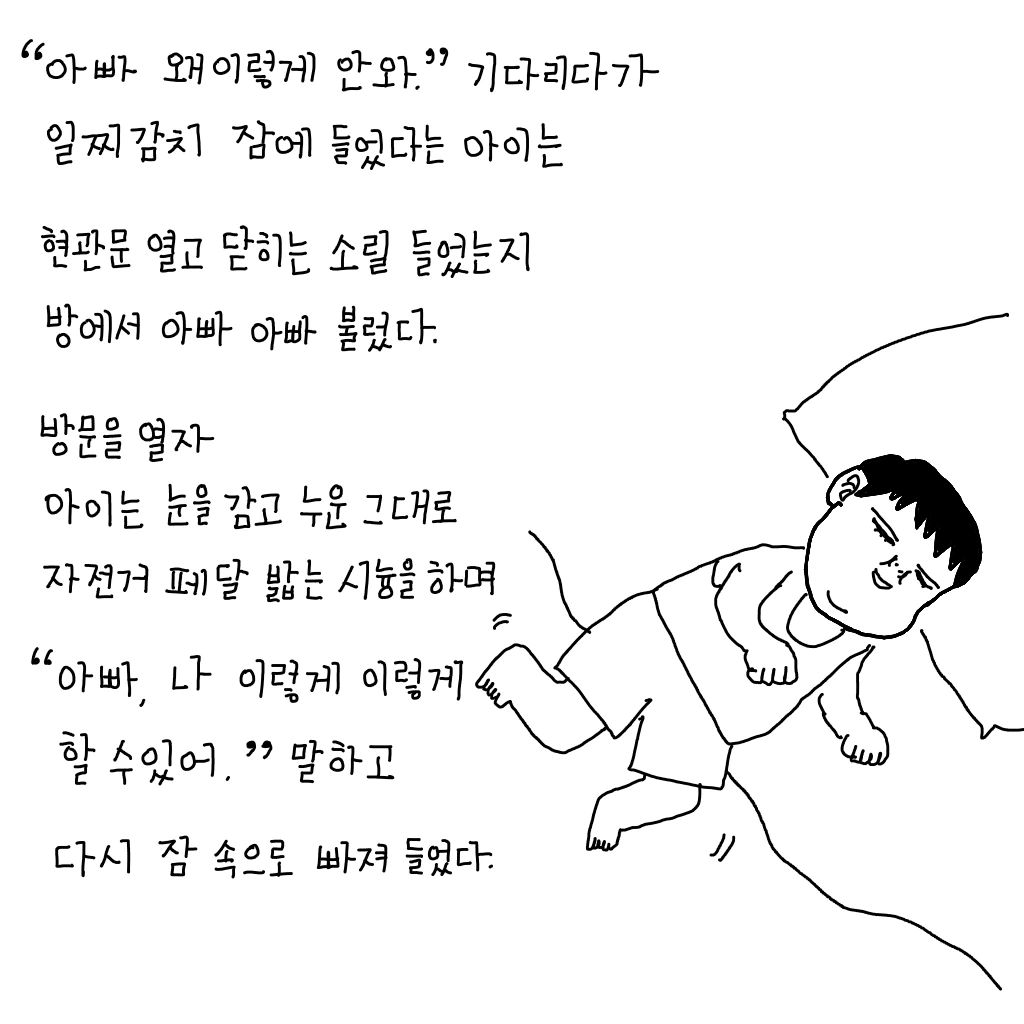 “아빠 왜이렇게 안와.” 기다리다가
일찌감치 잠에 들었다는 아이는
현관문 열고 닫히는 소릴 들었는지
방에서 아빠 아빠 불렀다.
방문을 열자
아이는 눈을 감고 누운 그대로
자전거 페달 밟는 시늉을 하며
“아빠, 나 이렇게 이렇게
할 수있어.” 말하고
다시 잠 속으로 빠져 들었다.